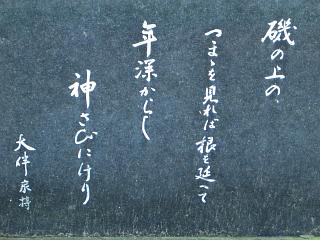 磯の上の
つまゝを見れば根を延へて
年深からし
神さびにけり
大伴家持